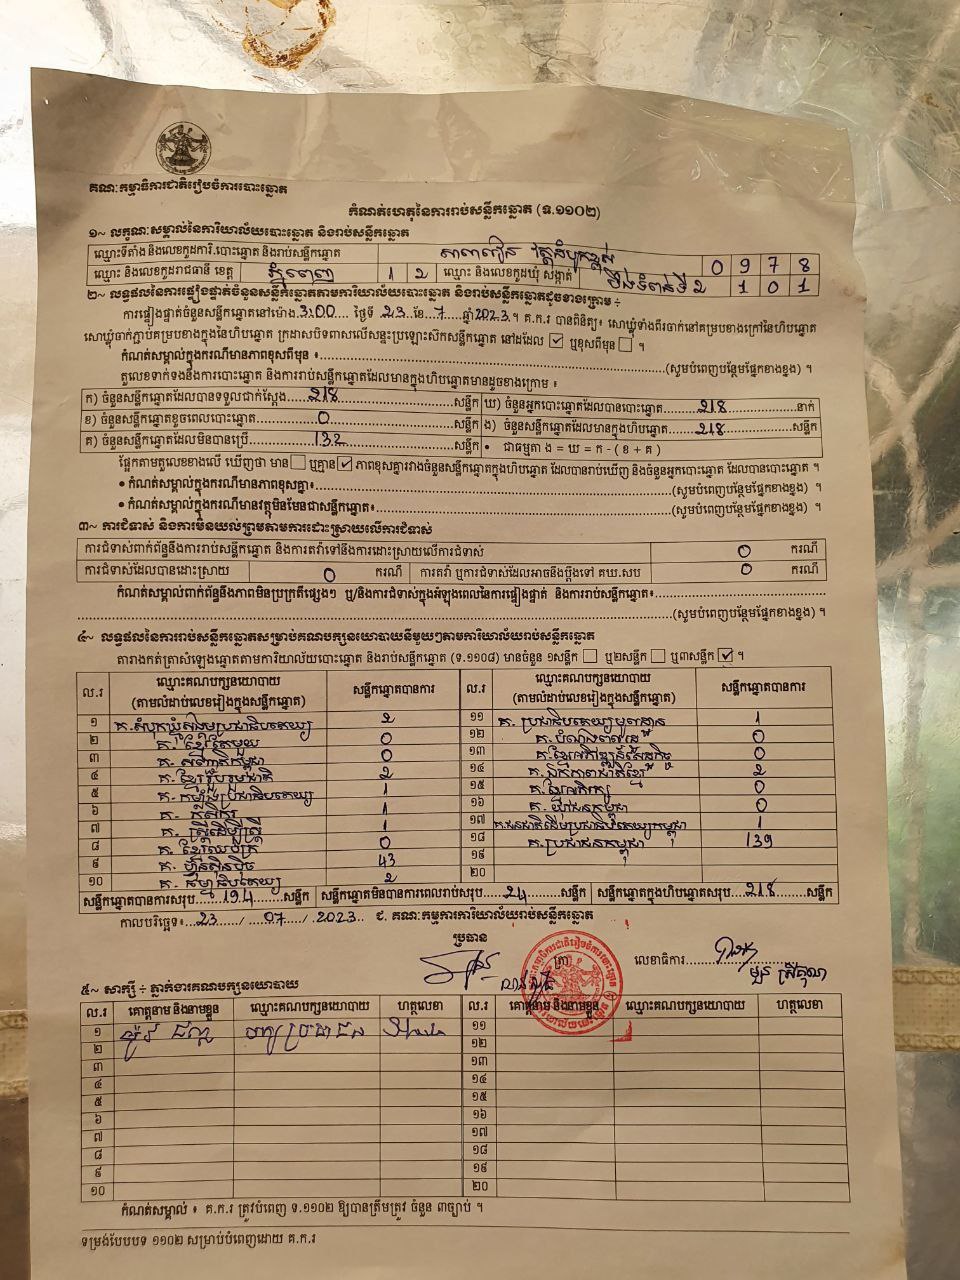 គណៈកម្មាធិការជាតិរៀបចំការបោះឆ្នោត
កំណត់ហេតុនៃការរាប់សន្លឹកឆ្នោត (ទ.១១០២)
១~ លក្ខណៈសម្គាល់នៃការិយាល័យបោះឆ្នោត និងរាប់សន្លឹកឆ្នោត
ឈ្មោះទីតាំង និងលេខកូដការិ.បោះឆ្នោត និងរាប់សន្លឹកឆ្នោត សាលារៀន 0 9 7 8
ឈ្មោះ និងលេខកូដរាជធានី ខេត្ត ភ្នំពេញ 1 2 ឈ្មោះ និងលេខកូដឃុំ សង្កាត់ បឹងទំពន់ទី2 1 0 1
២~ លទ្ធផលនៃការផ្ទៀងផ្ទាត់ចំនួនសន្លឹកឆ្នោតតាមការិយាល័យបោះឆ្នោត និងរាប់សន្លឹកឆ្នោតដូចខាងក្រោម ÷
ការផ្ទៀងផ្ទាត់ចំនួនសន្លឹកឆ្នោតនៅម៉ោង 3:00 ថ្ងៃទី 23 ខែ 7 ឆ្នាំ 2023 ។ គ.ក.រ បានពិនិត្យ៖ សោឃ្លុំទាំងពីរចាក់នៅគម្របខាងក្រៅនៃហិបឆ្នោត
សោឃ្លុំចាក់ភ្ជាប់គម្របខាងក្នុងនៃហិបឆ្នោត ក្រដាសបិទពាសលើសន្ទះប្រឡោះស៊កសន្លឹកឆ្នោត នៅដដែល ☑ ឬខុសពីមុន ☐ ។
កំណត់សម្គាល់ក្នុងករណីមានភាពខុសពីមុន ៖ (សូមបំពេញបន្ថែមផ្នែកខាងខ្នង) ។
តួលេខទាក់ទងនឹងការបោះឆ្នោត និងការរាប់សន្លឹកឆ្នោតដែលមានក្នុងហិបឆ្នោតមានដូចខាងក្រោម ៖
ក) ចំនួនសន្លឹកឆ្នោតដែលបានទទួលជាក់ស្ដែង សន្លឹក ឃ) ចំនួនអ្នកបោះឆ្នោតដែលបានបោះឆ្នោត 218 នាក់
ខ) ចំនួនសន្លឹកឆ្នោតខូចពេលបោះឆ្នោត 0 សន្លឹក ង) ចំនួនសន្លឹកឆ្នោតដែលមានក្នុងហិបឆ្នោត 218 សន្លឹក
គ) ចំនួនសន្លឹកឆ្នោតដែលមិនបានប្រើ 132 សន្លឹក • ជាធម្មតា ង = ឃ = ក - ( ខ + គ )
ផ្អែកតាមតួលេខខាងលើ ឃើញថា មាន ☐ ឬគ្មាន ☑ ភាពខុសគ្នារវាងចំនួនសន្លឹកឆ្នោតក្នុងហិបឆ្នោត ដែលបានរាប់ឃើញ និងចំនួនអ្នកបោះឆ្នោត ដែលបានបោះឆ្នោត ។
• កំណត់សម្គាល់ក្នុងករណីមានភាពខុសគ្នា៖ (សូមបំពេញបន្ថែមផ្នែកខាងខ្នង) ។
• កំណត់សម្គាល់ក្នុងករណីមានវត្ថុមិនមែនជាសន្លឹកឆ្នោត៖ (សូមបំពេញបន្ថែមផ្នែកខាងខ្នង) ។
៣~ ការជំទាស់ និងការមិនយល់ព្រមតាមការដោះស្រាយលើការជំទាស់
ការជំទាស់ពាក់ព័ន្ធនឹងការរាប់សន្លឹកឆ្នោត និងការតវ៉ាទៅនឹងការដោះស្រាយលើការជំទាស់ 0 ករណី
ការជំទាស់ដែលបានដោះស្រាយ 0 ករណី ការតវ៉ា ឬការជំទាស់ដែលអាចនឹងប្ដឹងទៅ គឃ.សប 0 ករណី
កំណត់សម្គាល់ពាក់ព័ន្ធនឹងភាពមិនប្រក្រតីផ្សេងៗ ឬ/និងការជំទាស់ក្នុងអំឡុងពេលនៃការផ្ទៀងផ្ទាត់ និងការរាប់សន្លឹកឆ្នោត៖
(សូមបំពេញបន្ថែមផ្នែកខាងខ្នង) ។
៤~ លទ្ធផលនៃការរាប់សន្លឹកឆ្នោតសម្រាប់គណបក្សនយោបាយនីមួយៗតាមការិយាល័យរាប់សន្លឹកឆ្នោត
តារាងកត់ត្រាសំឡេងឆ្នោតតាមការិយាល័យបោះឆ្នោត និងរាប់សន្លឹកឆ្នោត (ទ.១១០៨) មានចំនួន ១សន្លឹក ☐ ឬ២សន្លឹក ☐ ឬ៣សន្លឹក ☑ ។
ល.រ ឈ្មោះគណបក្សនយោបាយ (តាមលំដាប់លេខរៀងក្នុងសន្លឹកឆ្នោត) សន្លឹកឆ្នោតបានការ ល.រ ឈ្មោះគណបក្សនយោបាយ (តាមលំដាប់លេខរៀងក្នុងសន្លឹកឆ្នោត) សន្លឹកឆ្នោតបានការ
១ គ.សំបុកឃ្មុំសង្គមប្រជាធិបតេយ្យ 2 ១១ គ. ប្រជាធិបតេយ្យមូលដ្ឋាន 1
២ គ. ខ្មែរតែមួយ 0 ១២ 0
៣ គ. សញ្ជាតិកម្ពុជា 0 ១៣ គ.ខ្មែរអភិវឌ្ឍន៍សេដ្ឋកិច្ច 0
៤ គ. ខ្មែររួបរួមជាតិ 2 ១៤ គ.ឯកភាពជាតិខ្មែរ 2
៥ គ. កម្លាំងប្រជាធិបតេយ្យ 1 ១៥ គ.ខ្មែរអភិរក្ស 0
៦ គ. កសិករ 1 ១៦ គ. យុវជនកម្ពុជា 0
៧ គ. ស្ត្រីដើម្បីស្ត្រី 1 ១៧ គ.ជនជាតិដើមប្រជាធិបតេយ្យកម្ពុជា 1
៨ គ. ខ្មែរឈប់ក្រ 0 ១៨ គ.ប្រជាជនកម្ពុជា 139
៩ គ. ហ៊្វុនស៊ិនប៉ិច 43 ១៩
១០ គ. ធម្មាធិបតេយ្យ 2 ២០
សន្លឹកឆ្នោតបានការសរុប 194 សន្លឹក សន្លឹកឆ្នោតមិនបានការពេលរាប់សរុប 24 សន្លឹក សន្លឹកឆ្នោតក្នុងហិបឆ្នោតសរុប 218 សន្លឹក
កាលបរិច្ឆេទ៖ 23 / 07 / 2023 ជ. គណៈកម្មការការិយាល័យរាប់សន្លឹកឆ្នោត
ប្រធាន
ត្រា លេខាធិការ
៥~ សាក្សី ÷ ភ្នាក់ងារគណបក្សនយោបាយ
ល.រ គោត្តនាម និងនាមខ្លួន ឈ្មោះគណបក្សនយោបាយ ហត្ថលេខា ល.រ គោត្តនាម និងនាមខ្លួន ឈ្មោះគណបក្សនយោបាយ ហត្ថលេខា
១ ១១
២ ១២
៣ ១៣
៤ ១៤
៥ ១៥
៦ ១៦
៧ ១៧
៨ ១៨
៩ ១៩
១០ ២០
កំណត់សម្គាល់ ៖ គ.ក.រ ត្រូវបំពេញ ទ.១១០២ ឱ្យបានត្រឹមត្រូវ ចំនួន ៣ច្បាប់ ។
ទម្រង់បែបបទ ១១០២ សម្រាប់បំពេញដោយ គ.ក.រ